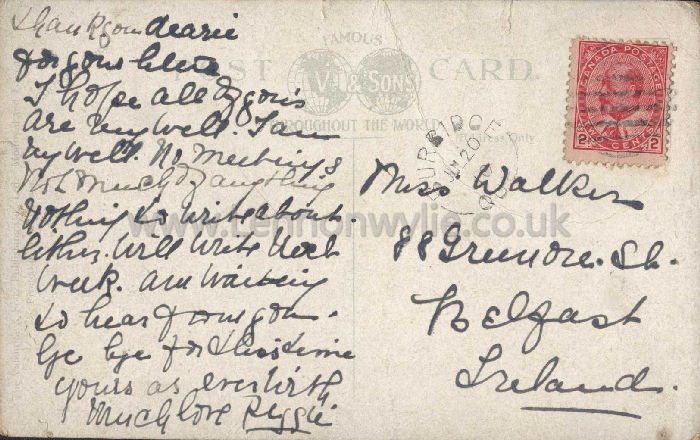 Thank you dearie
for your letter
I hope all of yours
are very well. I am
very well. No meetings
Not much of anything
Nothing to write about
Either. Will write next
week. Am waiting
to hear from you.
bye bye for this time
yours as ever with
much love Reggie
FAMOUS
POST CARD.
V & SONS
THROUGHOUT THE WORLD
Only
CANADA POSTAGE
2 TWO CENTS 2
20
Miss Walker
88 St.
Belfast
Ireland.
www.Lennonwylie.co.uk